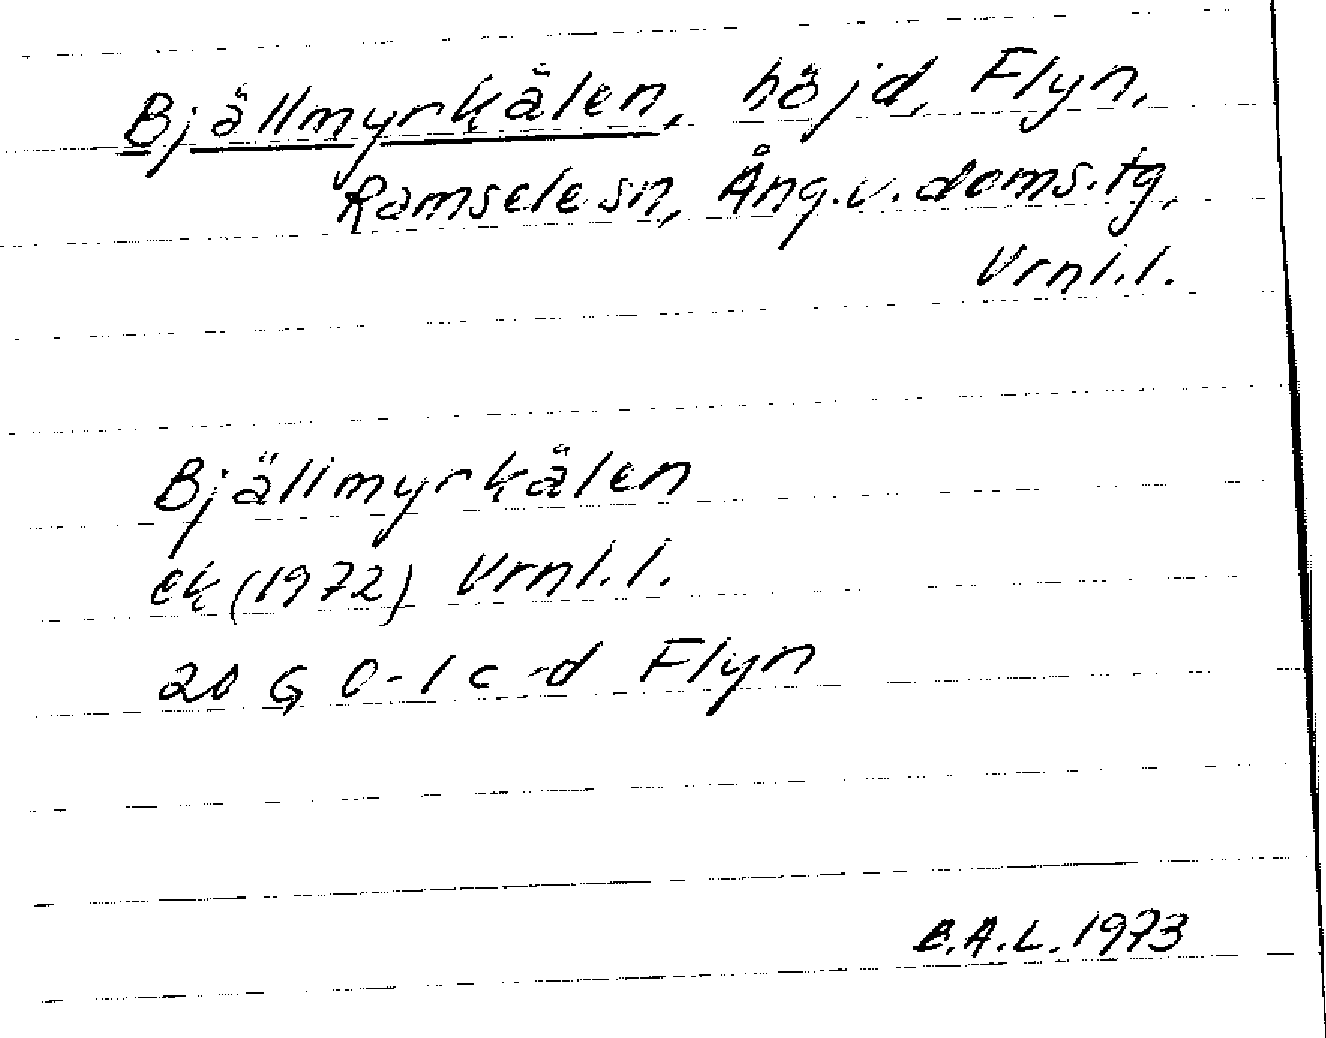 Bjällmyrkälen, höjd, Flyn,
Ramsele sn, Ång.v.doms.tg,
Vrnl.l.
Bjällmyrkälen
ek (1972) Vrnl.l.
20 G 0-1 c-d Flyn
B.A.L. 1973